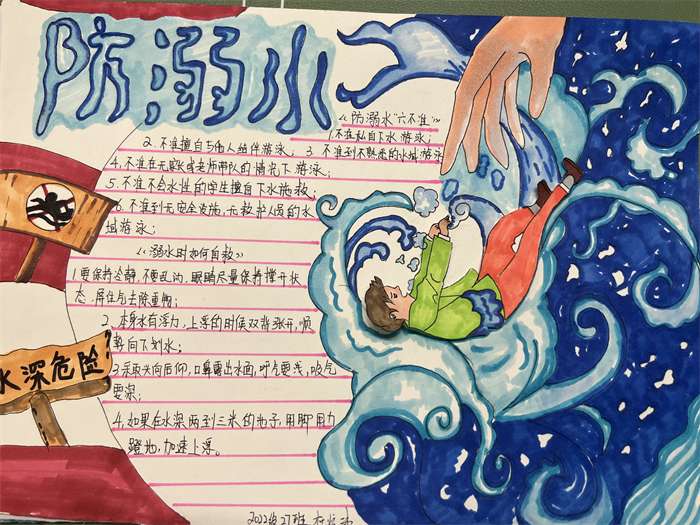 防溺水
《防溺水"六不准》
1.不准私自下水游泳;
2.不准擅自与他人结伴游泳, 3.不准到不熟悉的水域游泳
4.不准在无家长或老师带队的情况下游泳;
5.不准不会水性的学生擅自下水施救;
6.不准到无安全设施,无救护人员的水
域游泳;
《溺水时如何自救》
1要保持冷静,不要乱,眼睛尽量保持撑开状
态,屏住气去除重物;
2、本身水有浮力,上浮的时候双臂张开,顺
势向下划水;
3.采取头向后仰,口鼻露出水面,呼气要浅,吸气
要深;
4.如果在水深两到三米的池子,用脚用力
蹬地,加速上浮。
水深危险
2022级27班